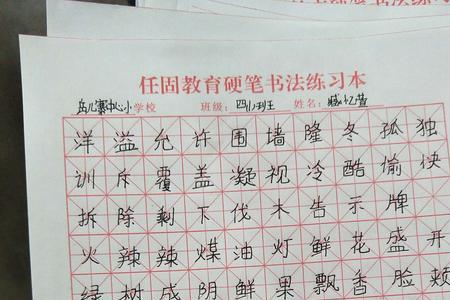 任固教育硬笔书法练习本
岳儿寨中心小学校 班级: 四(1)班 姓名: 臧忆
洋溢允许围墙隆冬孤独
训斥覆盖凝视冷酷愉快
拆除剩下伐木告示牌
火辣辣煤油灯鲜花盛开
绿树成阴鲜果飘香脸颊